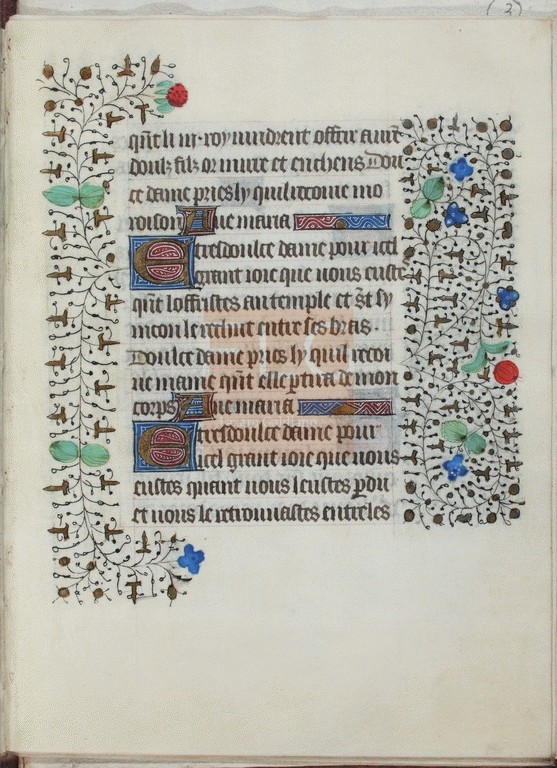 (3)
qñt li iii· roy vindrent offrir a vre
doulz filz or mirre et enchens Dou
ce dame pries ly quil recoiue mo
roison Aue maria
E tresdoulce dame pour icel
grant ioie que vous euste
qñt loffristes au temple et s̃t sy
meon le rechut entre ses bras·
Doulce dame pries ly quil recoi
ue mame qñt elle ptira de mon
corps Aue maria
E tresdoulce dame pour
icel grant ioie que vous
eustes quant vous leustes pdu
et vous le retrouuastes entre les